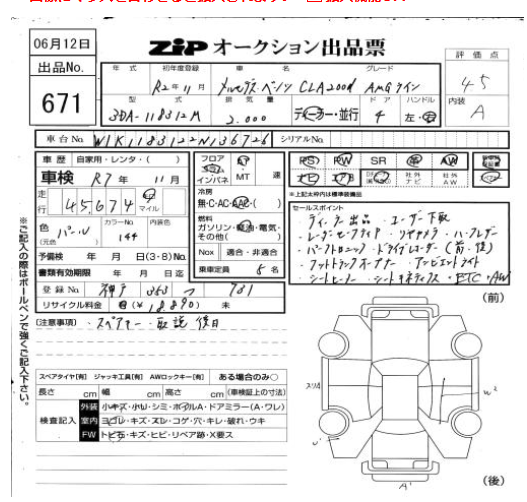 06月12日
ZIP オークション出品票
評価点
4.5
出品No.
671
年式 初年度登録 車名 グレード
R2年11月 メルセデス・ベンツ CLA200d AMGライン
型式 排気量 ドア ハンドル
3DA-118312M 2.000 ディーラー・並行 4 左・右
内装
A
車台No. W1K1183122N136726 シリアルNo.
車歴 自家用・レンタ・( )
車検 R7年 11月
走行 45,674 マイル
色 (元色) パール
カラーNo. 144
内装色
予備検 年 月 日(3・8)No.
書類有効期限 年 月 日迄
登録No. 神戸 363 701
リサイクル料金 (¥18,890) 未
フロア
インパネ MT 速
冷房
無・C・AC・AAC・( )
燃料
ガソリン・軽油・電気・その他( )
Nox 適合・非適合
乗車定員 5名
PS PW SR AW
社外ナビ 社外AW
※上記太枠内は標準装備品
セールスポイント
ディーラー出品・ユーザー下取
レーダーセーフティ・リヤカメラ・ハーフレザー
パークトロニック・ドライブレコーダー(前・後)
フットトランクオープナー・アンビエントライト
シートヒーター・シートキネティクス・ETC・AW
(注意事項)・スペアキー・取説 後日
※ご記入の際はボールペンで強くご記入下さい。
スペアタイヤ[有] ジャッキ工具[有] AWロックキー[有] ある場合のみ○
長さ cm 幅 cm 高さ cm (車検証上の寸法)
検査記入
外装 小キズ・小凹・シミ・ホイルA・ドアミラー(A・ワレ)
室内 ヨゴレ・キズ・スレ・コゲ・穴・キレ・破れ・ウキ
FW トビ石・キズ・ヒビ・リペア跡・X要ス
(前)
スリ4
W2
A1
(後)